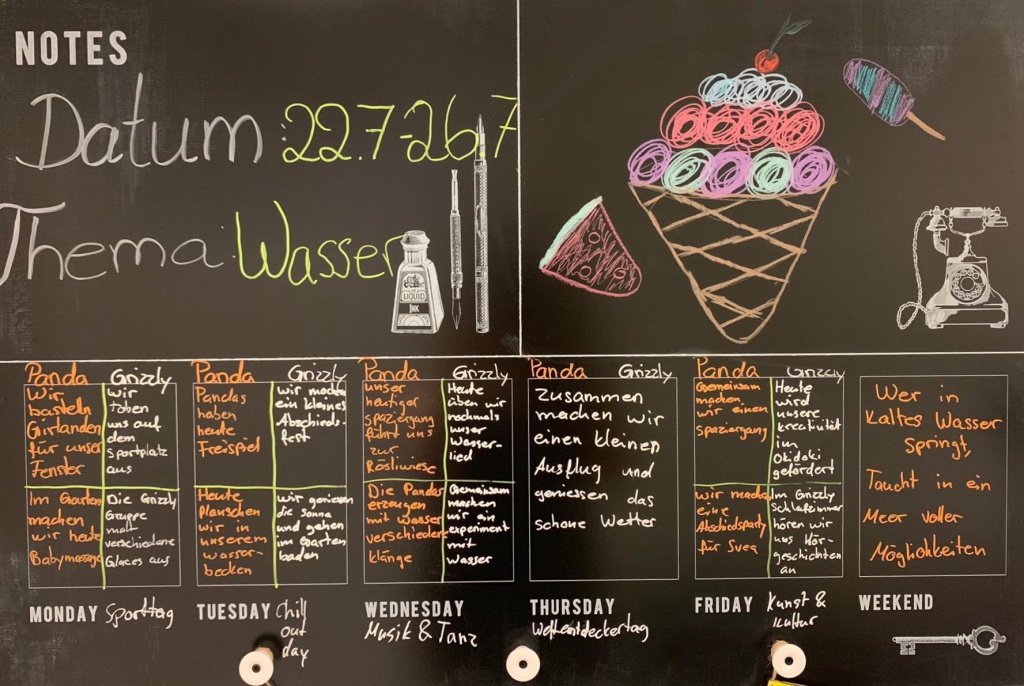 NOTES
Datum: 22.7-26.7
Thema: Wasser
LIQUID
INK
Panda Grizzly
Wir
basteln
Girlanden
für unser
Fenster
Wir
toben
uns auf
dem
Sportplatz
aus
Im Garten
machen
wir heute
Babymassage
Die Grizzly
Gruppe
malt
verschiedene
Glaces aus
MONDAY Sporttag
Panda Grizzly
Pandas
haben
heute
Freispiel
wir machen
ein kleines
Abschieds-
fest
Heute
Planschen
wir in
unserem
wasser-
becken
wir geniessen
die Sonne
und gehen
im Garten
baden
TUESDAY Chill
out
day
Panda Grizzly
unser
heutiger
spaziergang
führt uns
zur
Rösliwiese
Heute
üben wir
nochmals
unser
Wasser-
lied
Die Pandas
erzeugen
mit Wasser
verschiedene
klänge
Gemeinsam
machen
wir ein
experiment
mit
Wasser
WEDNESDAY
Musik & Tanz
Panda Grizzly
Zusammen
machen wir
einen kleinen
Ausflug und
geniessen das
schöne Wetter
THURSDAY
Weltentdeckertag
Panda Grizzly
Gemeinsam
machen
wir einen
spaziergang
Heute
wird
unsere
kreativität
im
Okidoki
gefördert
wir machen
eine
Abschiedsparty
für Svea
Im Grizzly
Schlafzimmer
hören wir
uns Hör-
geschichten
an
FRIDAY Kunst &
Kultur
Wer in
kaltes Wasser
springt,
Taucht in ein
Meer voller
Möglichkeiten
WEEKEND